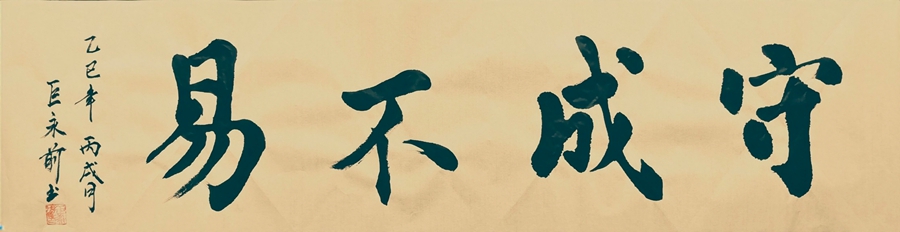 守成不易
乙巳年 丙戌月
巨永前书